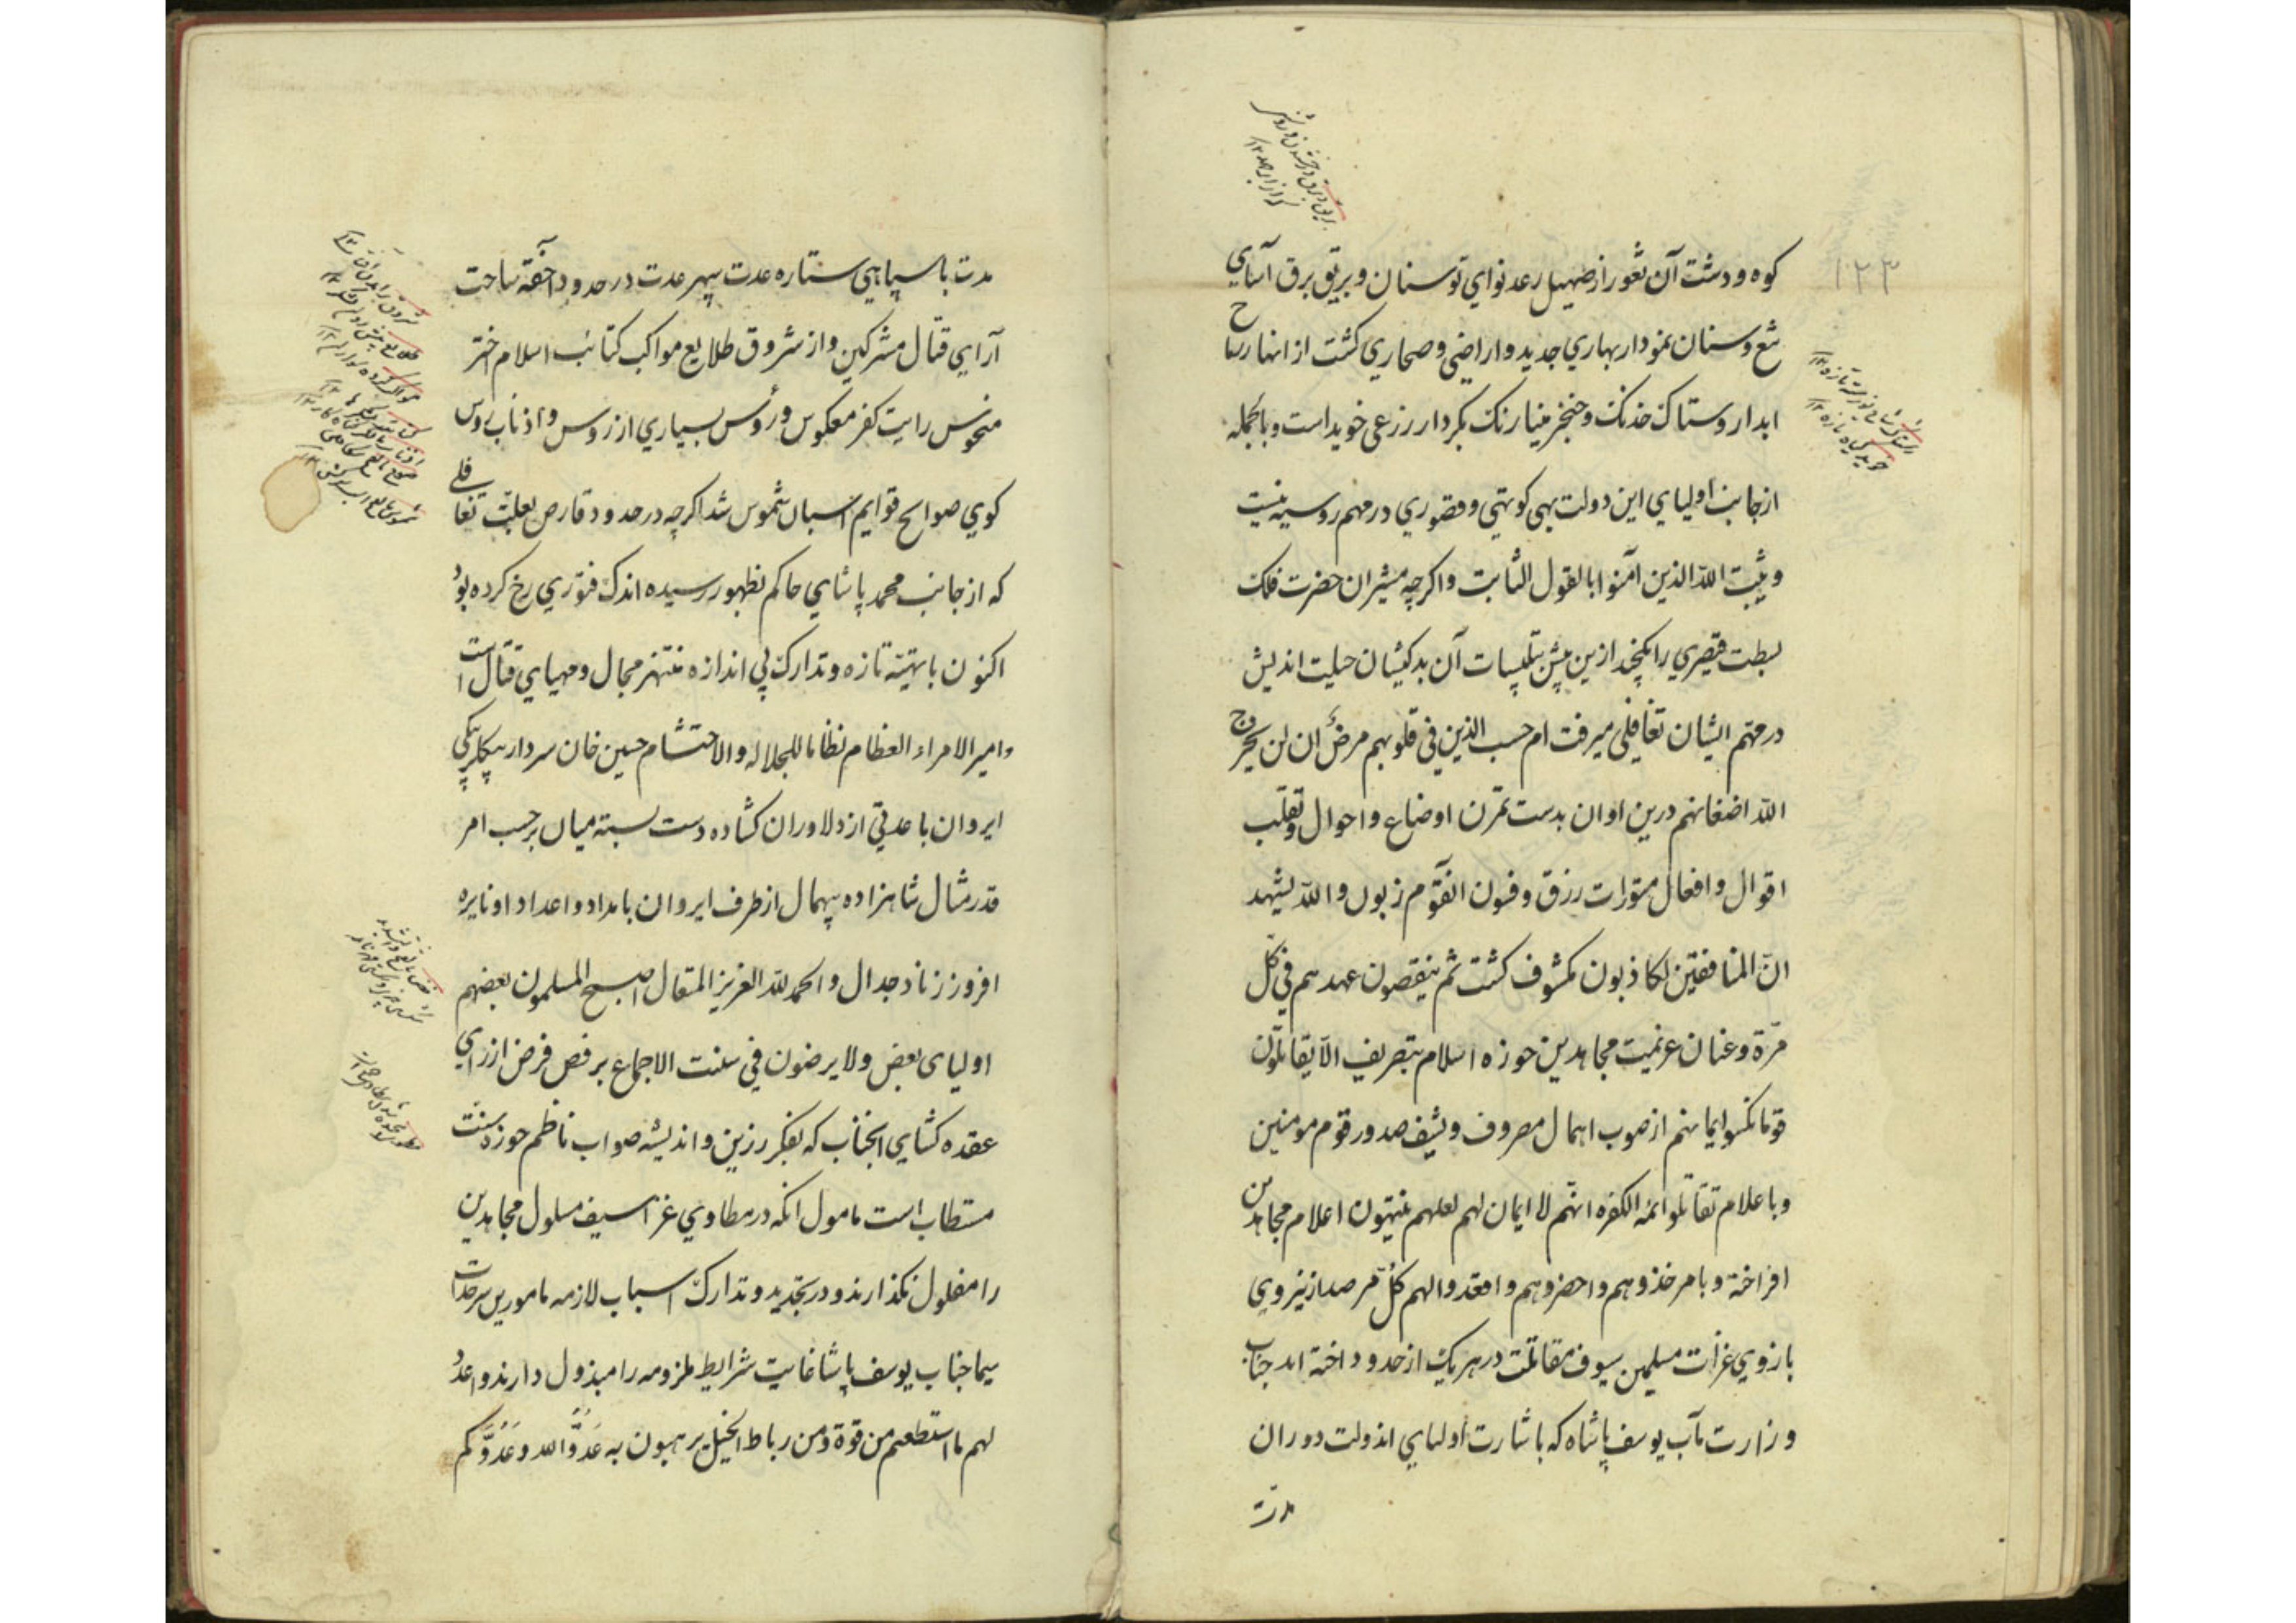 ۱۲۳
کوه و دشت آن ثغور از صهیل رعد نوای توسنان و بریق برق آسای
تیغ و سنان نمودار بهاری جدید و اراضی و صحاری کشت از انهار رماح
ابدار وستاک خدنک و خنجر مینا رنک بکردار زرعی خوید است و بالجمله
از جانب اولیای این دولت بهی کوتهی و قصوری در مهم روسیه نیست
و یثبت الله الذین آمنوا بالقول الثابت و اکرچه مشیران حضرت فلک
بسطت قیصری را یکچند ازین پیش بتلبیسات آن بدکیشان حیلت اندیش
در مهم ایشان تغافلی میرفت ام حسب الذین فی قلوبهم مرض ان لن یخرج
الله اضغانهم درین اوان بدست تمرن اوضاع و احوال و تقلب
اقوال و افعال مزورات رزق و فسون انقوم زبون و الله یشهد
ان المنافقین لکاذبون مکشوف کشت ثم ینقضون عهدهم فی کل
مرة و عنان عزیمت مجاهدین حوزه اسلام بتصریف الا یقاتلون
قوما نکسوا ایمانهم از صوب اهمال مصروف و یشف صدور قوم مومنین
و با علام تقاتلوا ائمه الکفره انهم لا ایمان لهم لعلهم ینتهون اعلام مجاهدین
افراخته و بامر خذوهم و احضروهم و اقعدوا لهم کل مرصد از نیروی
بازوی غزات مسلمین سیوف مقاتلت در هر یک از حدود اخته اند جناب
وزارت مآب یوسف پاشاه که باشارت اولیای اندولت دوران
مدت
مدت با سپاهی ستاره عدت سپهر عدت در حدود اخسقه ساحت
آرای قتال مشرکین و از شروق طلایع مواکب کتائب اسلام اختر
منحوس رایت کفر معکوس و رؤس بسیاری از روس و اذناب روس
کوی صوالح قوایم اسبان شموس شد اکرچه در حدود قارص بعلت تغافلی
که از جانب محمد پاشای حاکم بظهور رسیده اندک فتوری رخ کرده بود
اکنون با تهیئه تازه و تدارک بی اندازه منتهز مجال و مهیای قتال است
و امیر الامراء العظام نظاما للجلاله و الاحتشام حسین خان سردار بیکلربیکی
ایروان با عدتی از دلاوران کشاده دست بسته میان بر حسب امر
قدر مثال شاهزاده بیهمال از طرف ایروان بامداد و اعداد او نایره
افروز زناد جدال و الحمد لله العزیز المتعال اصبح المسلمون بعضهم
اولیای بعض و لا یرضون فی سنت الاجماع برفض فرض از رای
عقده کشای انجناب که بفکر رزین و اندیشه صواب ناظم حوزه سنت
مستطاب است مامول انکه در مطاوی غزا سیف مسلول مجاهدین
را مفلول نکذارند و در تجدید و تدارک اسباب لازمه مامورین سرحدات
سیما جناب یوسف پاشا غایت شرایط ملزومه را مبذول دارند و اعدوا
لهم ما استطعتم من قوة و من رباط الخیل یرهبون به عَدُوَّ الله و عَدُوَّکم